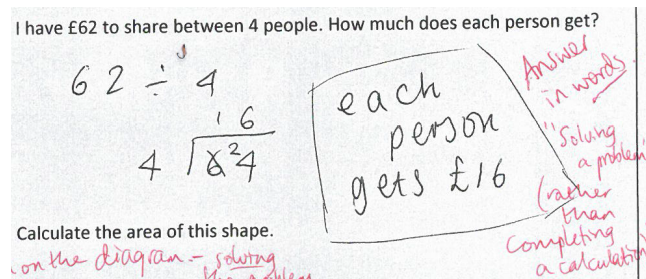 I have £62 to share between 4 people. How much does each person get?
62 ÷ 4
16
4 6²4
each
person
gets £16
Answer
in words
"Solving
a problem
(rather
than
Completing
a calculation
Calculate the area of this shape.
on the diagram - solving